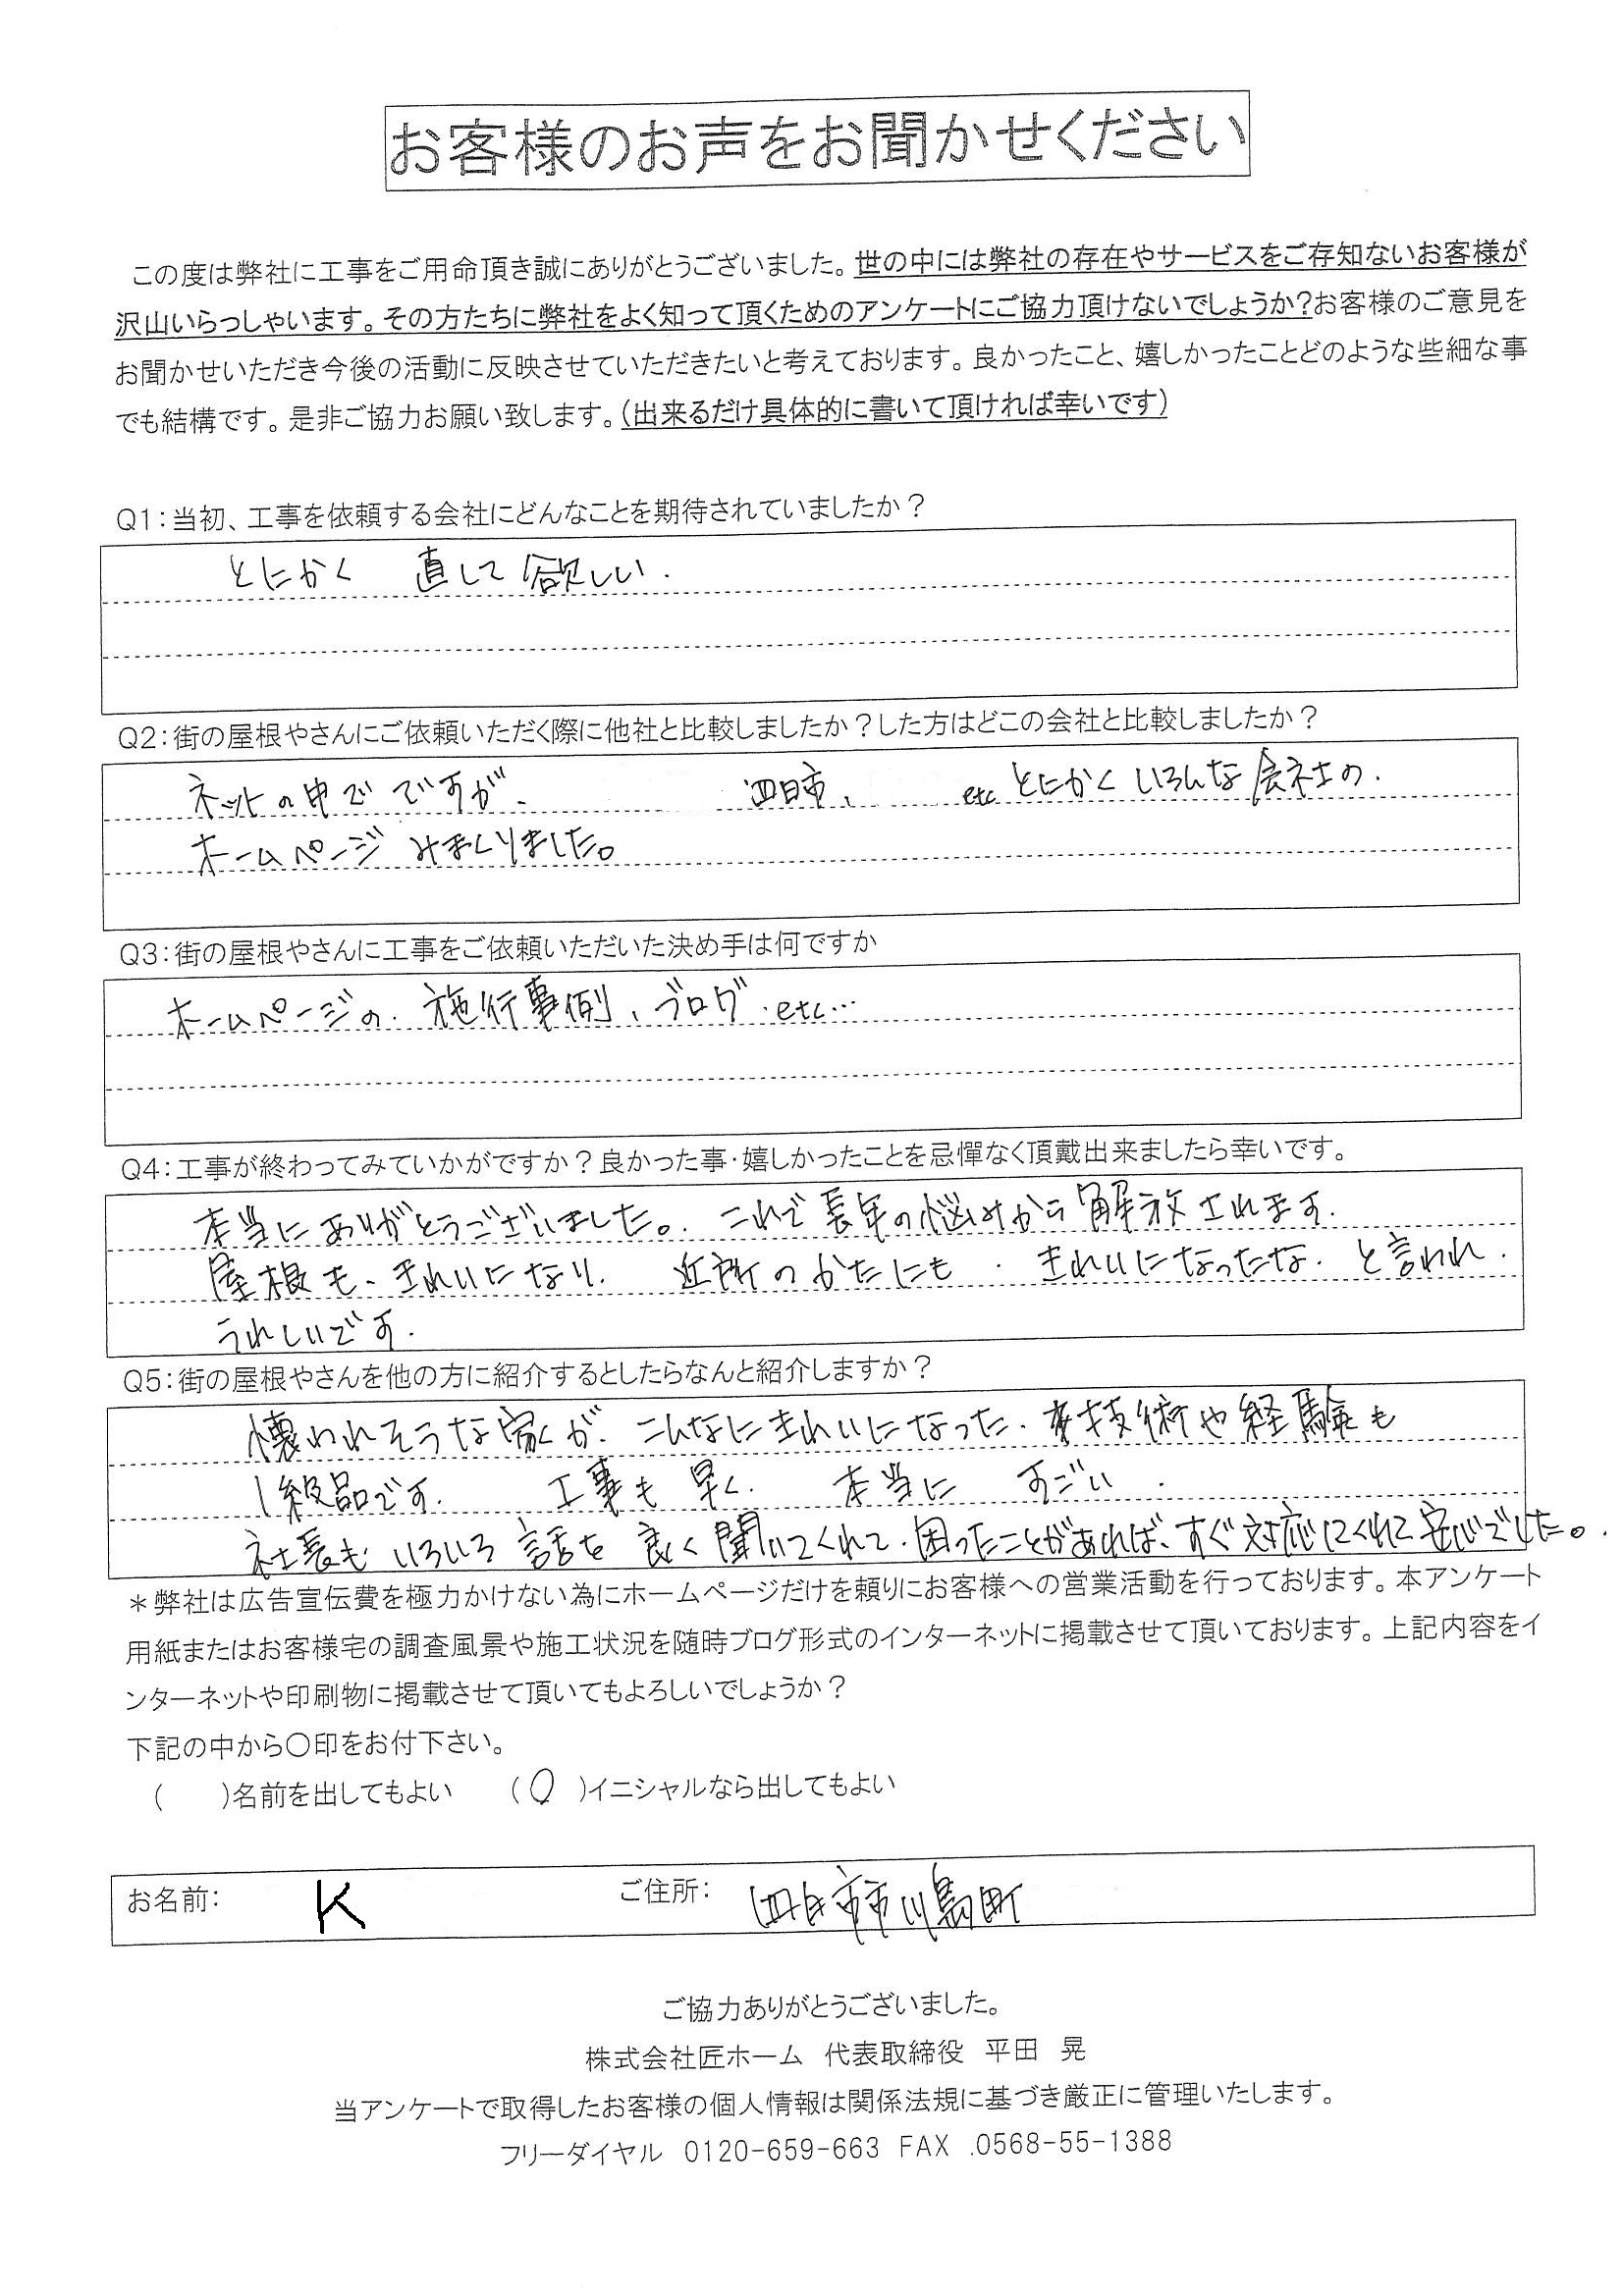 お客様のお声をお聞かせください
この度は弊社に工事をご用命頂き誠にありがとうございました。世の中には弊社の存在やサービスをご存知ないお客様が
沢山いらっしゃいます。その方たちに弊社をよく知って頂くためのアンケートにご協力頂けないでしょうか?お客様のご意見を
お聞かせいただき今後の活動に反映させていただきたいと考えております。良かったこと、嬉しかったことどのような些細な事
でも結構です。是非ご協力お願い致します。(出来るだけ具体的に書いて頂ければ幸いです)
Q1:当初、工事を依頼する会社にどんなことを期待されていましたか?
とにかく 直して欲しい.
Q2:街の屋根やさんにご依頼いただく際に他社と比較しましたか?した方はどこの会社と比較しましたか?
ネットの中でですが、 四日市、 etc とにかく いろんな会社の.
ホームページ みまくりました。
Q3:街の屋根やさんに工事をご依頼いただいた決め手は何ですか
ホームページの. 施行事例、ブログ.etc…
Q4:工事が終わってみていかがですか?良かった事・嬉しかったことを忌憚なく頂戴出来ましたら幸いです。
本当にありがとうございました。. これで長年の悩みから解放されます.
屋根も、きれいになり. 近所のかたにも . きれいになったな. と言われ.
うれしいです.
Q5:街の屋根やさんを他の方に紹介するとしたらなんと紹介しますか?
壊われそうな家が. こんなにきれいになった. 技術や経験も
1級品です. 工事も早く. 本当に すごい .
社長も いろいろ 話を 良く聞いてくれて.困ったことがあれば、すぐ対応してくれて安心でした。.
*弊社は広告宣伝費を極力かけない為にホームページだけを頼りにお客様への営業活動を行っております。本アンケート
用紙またはお客様宅の調査風景や施工状況を随時ブログ形式のインターネットに掲載させて頂いております。上記内容をイ
ンターネットや印刷物に掲載させて頂いてもよろしいでしょうか?
下記の中から○印をお付下さい。
( )名前を出してもよい (○)イニシャルなら出してもよい
お名前: K ご住所: 四日市市川島町
ご協力ありがとうございました。
株式会社匠ホーム 代表取締役 平田 晃
当アンケートで取得したお客様の個人情報は関係法規に基づき厳正に管理いたします。
フリーダイヤル 0120-659-663 FAX .0568-55-1388